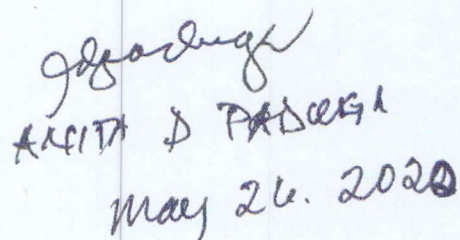 ANITA D PADUGA
May 26. 2020